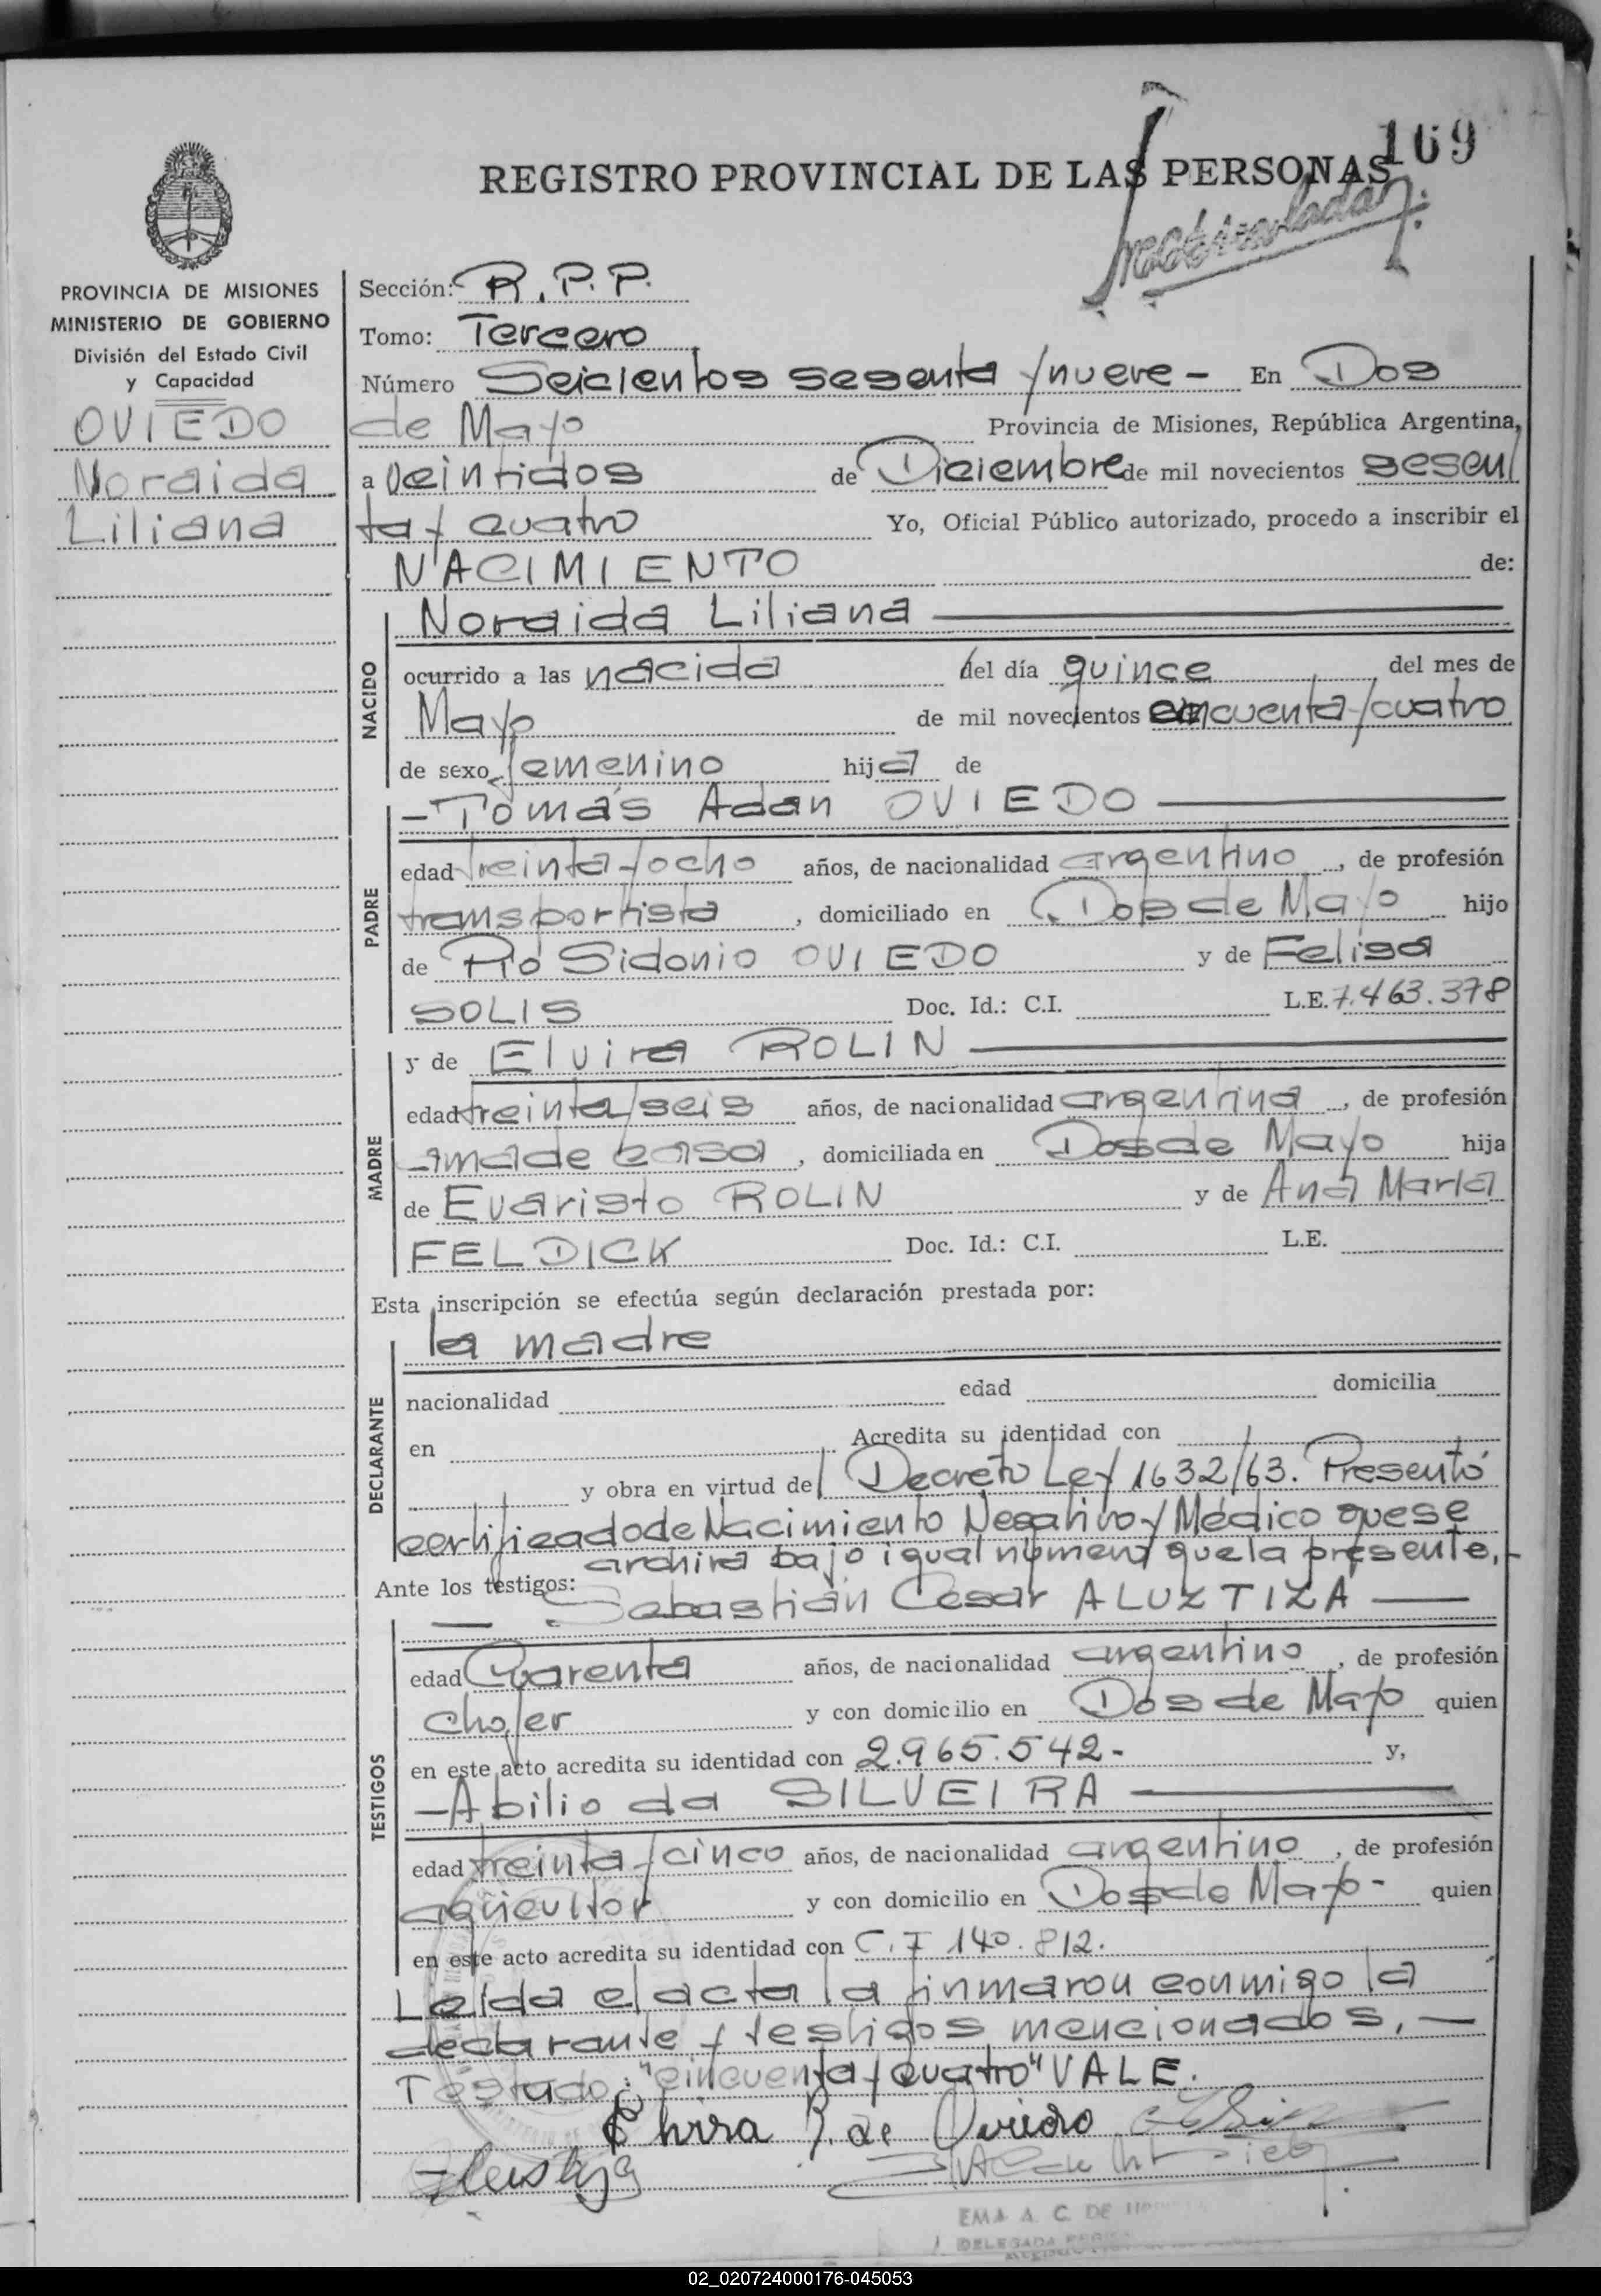 169
REGISTRO PROVINCIAL DE LAS PERSONAS
PROVINCIA DE MISIONES
MINISTERIO DE GOBIERNO
División del Estado Civil
y Capacidad
OVIEDO
Noraida
Liliana
Sección: R.P.P.
Tomo: Tercero
Número Seicientos sesenta y nueve - En Dos
de Mayo Provincia de Misiones, República Argentina,
a veintidos de Diciembre de mil novecientos sesen
ta y cuatro Yo, Oficial Público autorizado, procedo a inscribir el
NACIMIENTO de:
NACIDO
Noraida Liliana
ocurrido a las nacida del día quince del mes de
Mayo de mil novecientos cincuenta y cuatro
de sexo femenino hija de
PADRE
- Tomás Adan OVIEDO
edad treinta y ocho años, de nacionalidad argentino, de profesión
transportista, domiciliado en Dos de Mayo hijo
de Pío Sidonio OVIEDO y de Felisa
SOLIS Doc. Id.: C.I. L.E. 7.463.378
MADRE
y de Elvira ROLIN
edad treinta y seis años, de nacionalidad argentina, de profesión
ama de casa, domiciliada en Dos de Mayo hija
de Evaristo ROLIN y de Ana María
FELDICK Doc. Id.: C.I. L.E.
Esta inscripción se efectúa según declaración prestada por:
DECLARANTE
la madre
nacionalidad edad domicilia
en Acredita su identidad con
y obra en virtud del Decreto Ley 1632/63. Presentó
certificado de Nacimiento Negativo y Médico que se
archiva bajo igual número que la presente.-
Ante los testigos:
TESTIGOS
Sebastián Cesar ALUZTIZA
edad Cuarenta años, de nacionalidad argentino, de profesión
chofer y con domicilio en Dos de Mayo quien
en este acto acredita su identidad con 2.965.542- y,
- Abilio da SILVEIRA
edad treinta y cinco años, de nacionalidad argentino, de profesión
agricultor y con domicilio en Dos de Mayo - quien
en este acto acredita su identidad con C.I 140.812.
Leída el acta la finmaron conmigo la
declarante y testigos mencionados. -
Testado: "cincuenta y cuatro" VALE.
Elvira R. de Oviedo
EMA A. C. DE
DELEGADA
02_020724000176-045053